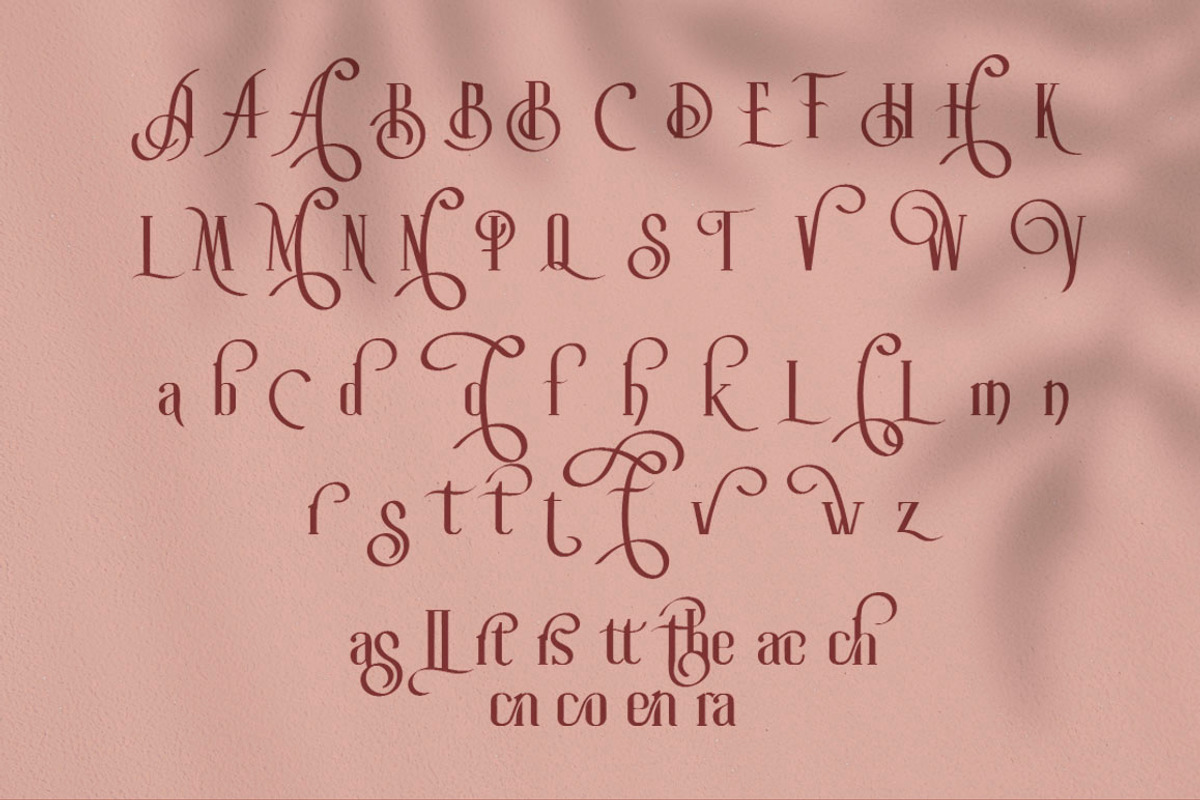 A A A B B B C D E F H H K
L M M N N P Q S T V W Y
a b c d d f h k L L m n
r s t t t t v w z
as LL rt rs tt the ac ch
cn co en ra